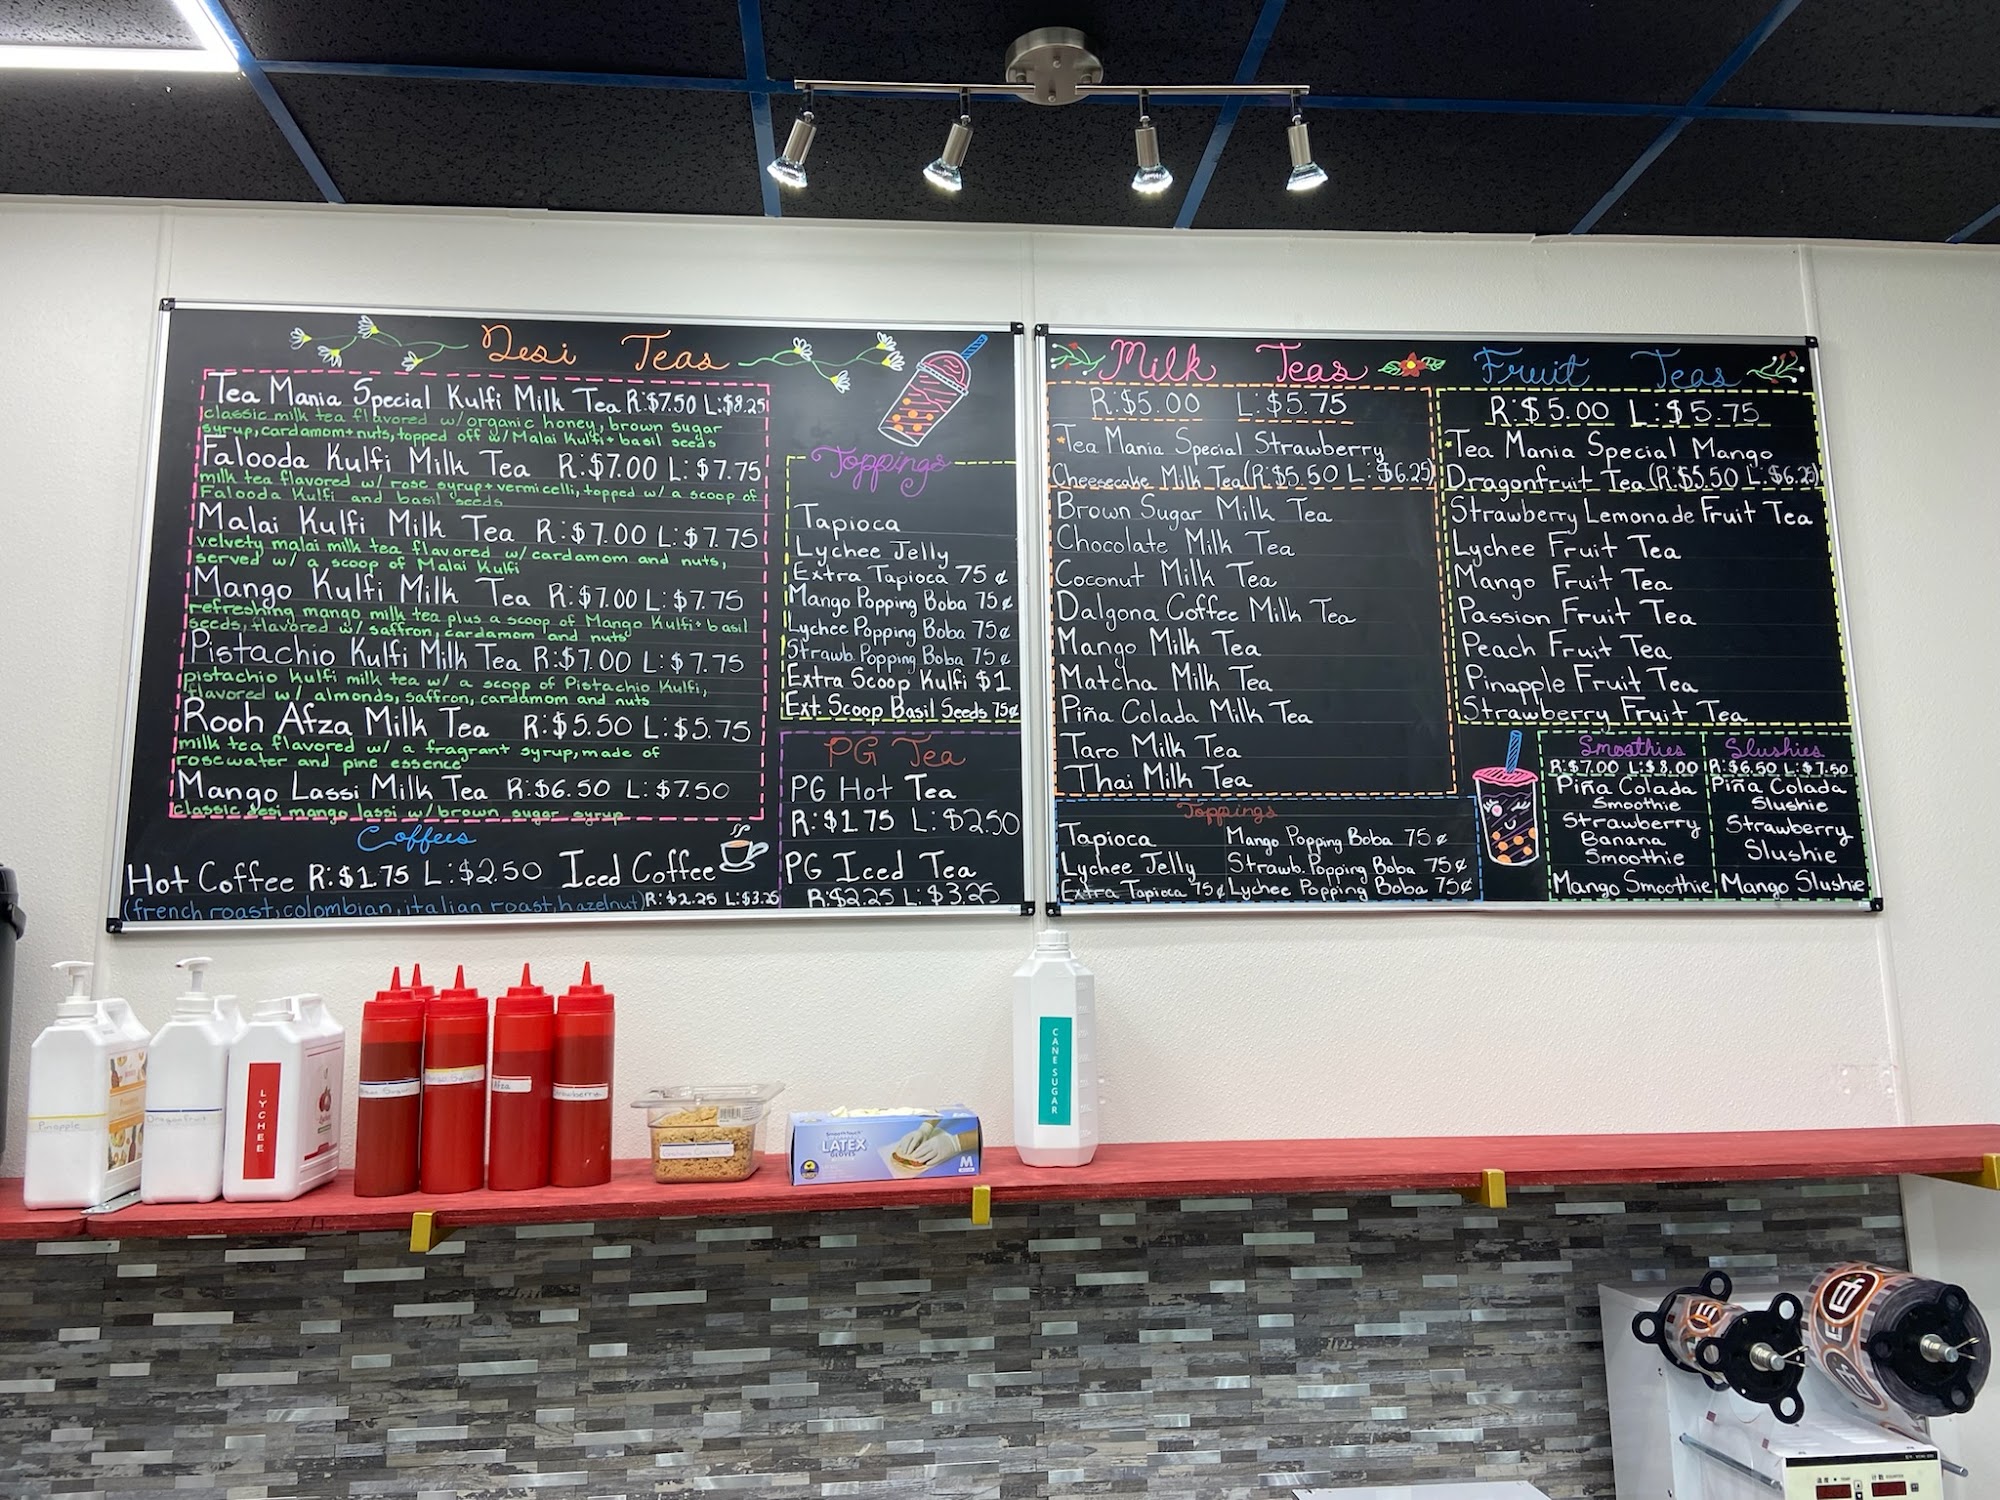 Desi Teas
Tea Mania Special Kulfi Milk Tea R:$7.50 L:$8.25
classic milk tea flavored w/organic honey, brown sugar
syrup, cardamom + nuts, topped off w/ Malai Kulfi + basil seeds
Falooda Kulfi Milk Tea R:$7.00 L:$7.75
milk tea flavored w/ rose syrup + vermicelli, topped w/ a scoop of
Falooda Kulfi and basil seeds
Malai Kulfi Milk Tea R:$7.00 L:$7.75
velvety malai milk tea flavored w/ cardamom and nuts,
served w/ a scoop of Malai Kulfi
Mango Kulfi Milk Tea R:$7.00 L:$7.75
refreshing mango milk tea plus a scoop of Mango Kulfi + basil
seeds, flavored w/ saffron, cardamom and nuts
Pistachio Kulfi Milk Tea R:$7.00 L:$7.75
pistachio kulfi milk tea w/ a scoop of Pistachio Kulfi,
flavored w/ almonds, saffron, cardamom and nuts
Rooh Afza Milk Tea R:$5.50 L:$5.75
milk tea flavored w/ a fragrant syrup, made of
rosewater and pine essence
Mango Lassi Milk Tea R:$6.50 L:$7.50
classic desi mango lassi w/ brown sugar syrup
Coffees
Hot Coffee R:$1.75 L:$2.50 Iced Coffee
(french roast, colombian, italian roast, hazelnut) R:$2.25 L:$3.25
Toppings
Tapioca
Lychee Jelly
Extra Tapioca 75¢
Mango Popping Boba 75¢
Lychee Popping Boba 75¢
Strawb. Popping Boba 75¢
Extra Scoop Kulfi $1
Ext. Scoop Basil Seeds 75¢
PG Tea
PG Hot Tea
R:$1.75 L:$2.50
PG Iced Tea
R:$2.25 L:$3.25
Milk Teas
R:$5.00 L:$5.75
*Tea Mania Special Strawberry
Cheesecake Milk Tea (R:$5.50 L:$6.25)
Brown Sugar Milk Tea
Chocolate Milk Tea
Coconut Milk Tea
Dalgona Coffee Milk Tea
Mango Milk Tea
Matcha Milk Tea
Piña Colada Milk Tea
Taro Milk Tea
Thai Milk Tea
Toppings
Tapioca
Lychee Jelly
Extra Tapioca 75¢
Mango Popping Boba 75¢
Strawb. Popping Boba 75¢
Lychee Popping Boba 75¢
Fruit Teas
R:$5.00 L:$5.75
*Tea Mania Special Mango
Dragonfruit Tea (R:$5.50 L:$6.25)
Strawberry Lemonade Fruit Tea
Lychee Fruit Tea
Mango Fruit Tea
Passion Fruit Tea
Peach Fruit Tea
Pinapple Fruit Tea
Strawberry Fruit Tea
Smoothies
R:$7.00 L:$8.00
Piña Colada
Smoothie
Strawberry
Banana
Smoothie
Mango Smoothie
Slushies
R:$6.50 L:$7.50
Piña Colada
Slushie
Strawberry
Slushie
Mango Slushie
Pinapple
Dragonfruit
LYCHEE
Afza
LATEX
GLOVES
M
CANE SUGAR